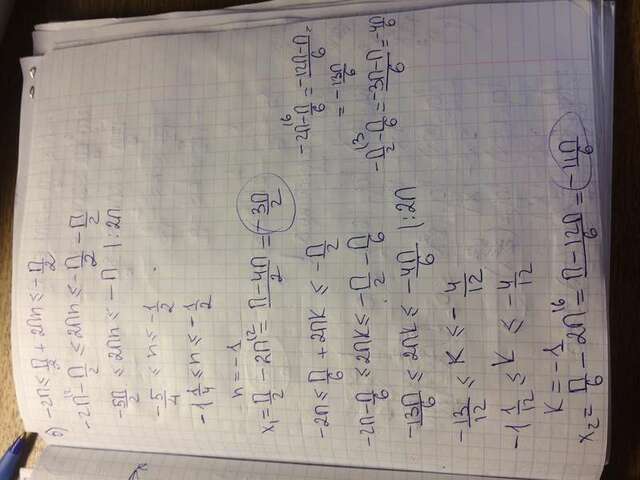 б) -2π ≤ π/2 + 2πn ≤ -π/2
-2π^{12} - π/2 ≤ 2πn ≤ -π/2 - π/2
-5π/2 ≤ 2πn ≤ -π |:2π
-5/4 ≤ n ≤ -1/2
-1 1/4 ≤ n ≤ -1/2
n = -1
x₁ = π/2 - 2π^{12} = π-4π/2 = -3π/2
-2π ≤ π/6 + 2πk ≤ -π/2
-2π - π/6 ≤ 2πk ≤ -π/2 - π/6
-13π/6 ≤ 2πk ≤ -4π/6 |:2π
-13/12 ≤ k ≤ -4/12
-1 1/12 ≤ k ≤ -4/12
k = -1
x₂ = π/6 - 2π^{16} = π-12π/6 = -11π/6
-2π^{16} - π/6 = -12π-π/6 =
= -13π/6
-π/2^{13} - π/6 = -3π-π/6 = -4π/6